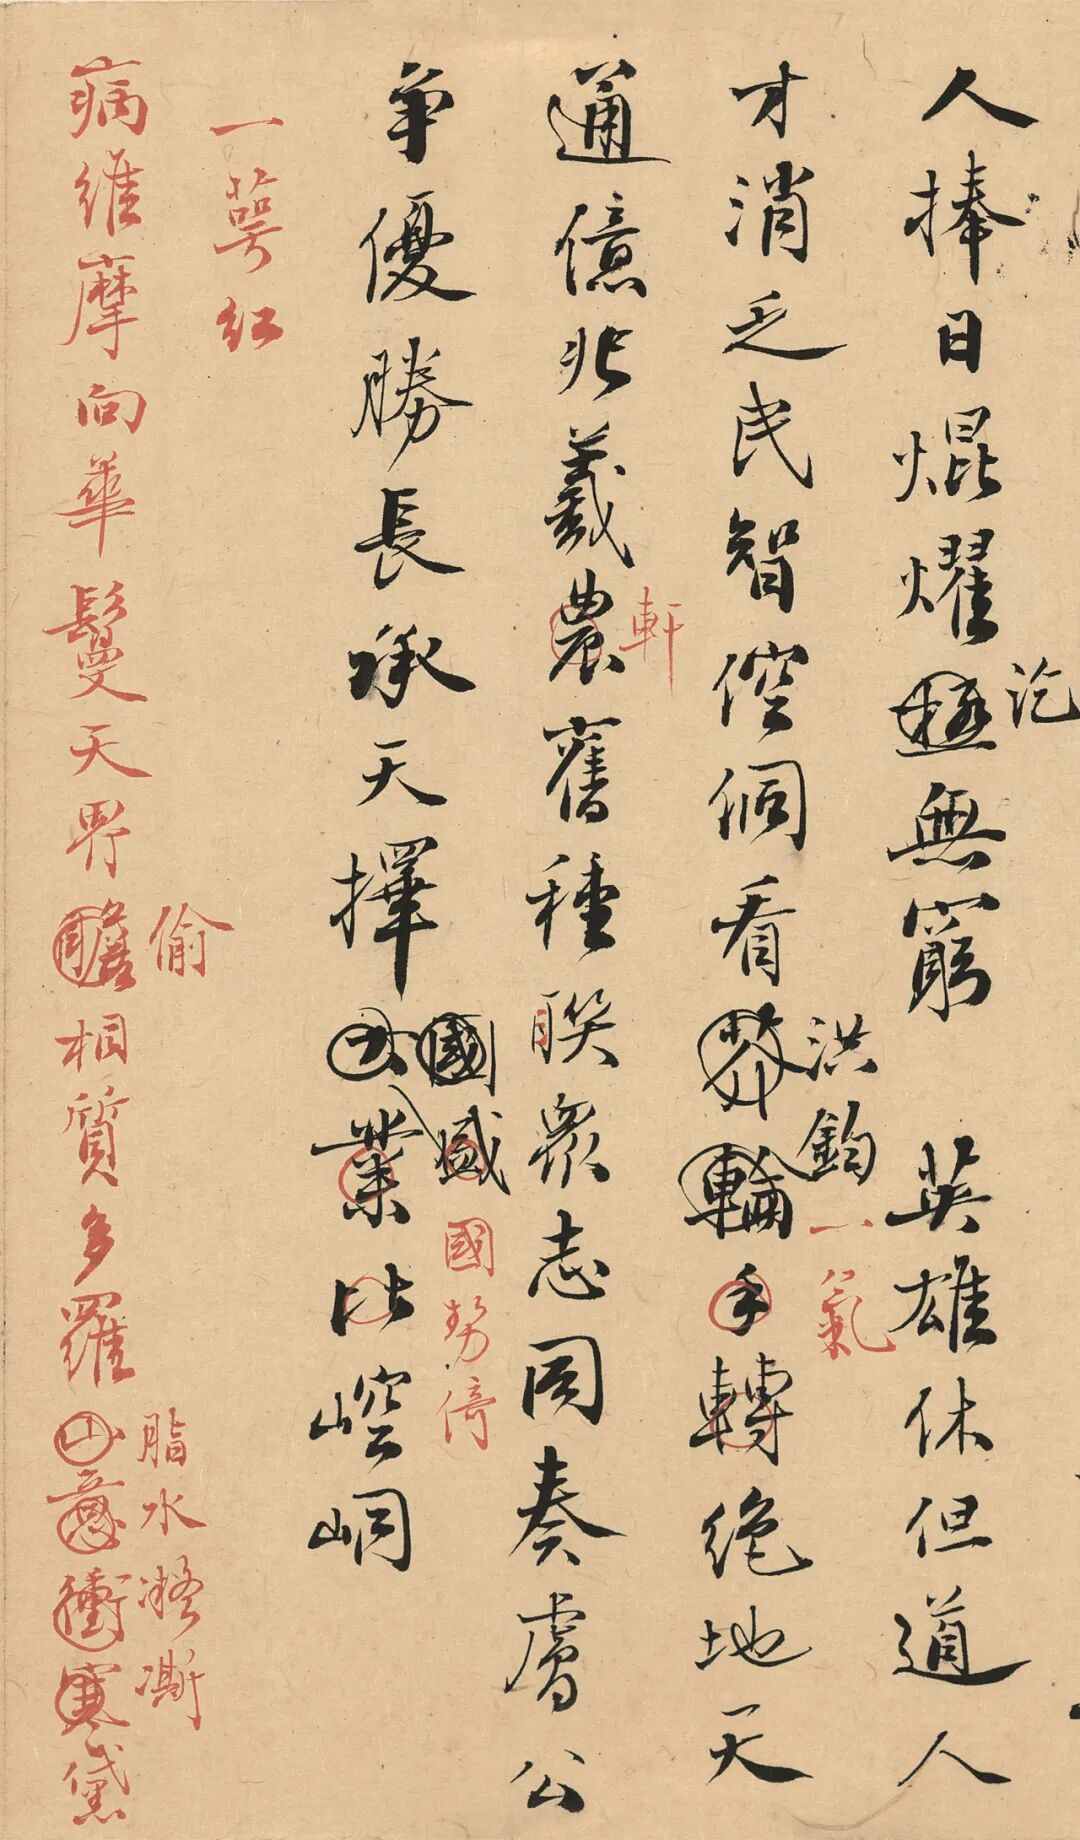 人捧日焜燿極無窮　英雄休但道人
訖
才消乏民智倥侗看輪手轉絶地天
洪鈞一氣
通億兆羲農舊種聯衆志同奏膚公
軒
争優勝長承天擇大業比崆峒
國盛國勢倚
一萼紅
病維摩向華鬘天界瞻相質多羅山意衝寒黛
偷
脂水凝澌